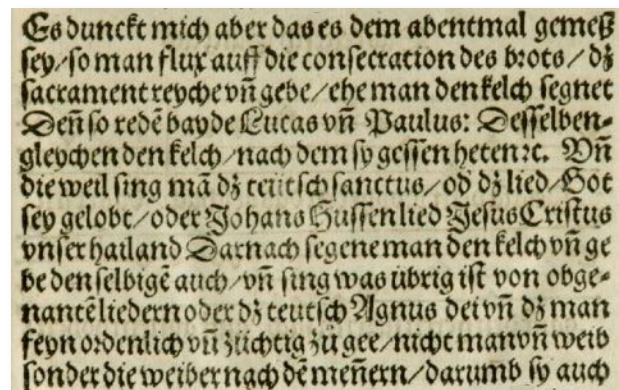 Es dunckt mich aber das es dem abentmal gemeß
sey/so man flux auff die consecration des brots/dʒ
sacrament reyche vñ gebe/ehe man den kelch segnet
Deñ so redē bayde Lucas vñ Paulus: Desselben-
gleychen den kelch/nach dem sy gessen heten ꝛc. Vñ
die weil sing mā dʒ teütsch sanctus/od dʒ lied/Got
sey gelobt/oder Johans Hussen lied Jesus Cristus
vnser hailand Darnach segene man den kelch vñ ge
be den selbigē auch/vñ sing was übrig ist von obge-
nantē liedern oder dʒ teutsch Agnus dei vñ dʒ man
feyn ordenlich vñ züchtig zů gee/nicht man vñ weib
sonder die weiber nach dē meñern/darumb sy auch